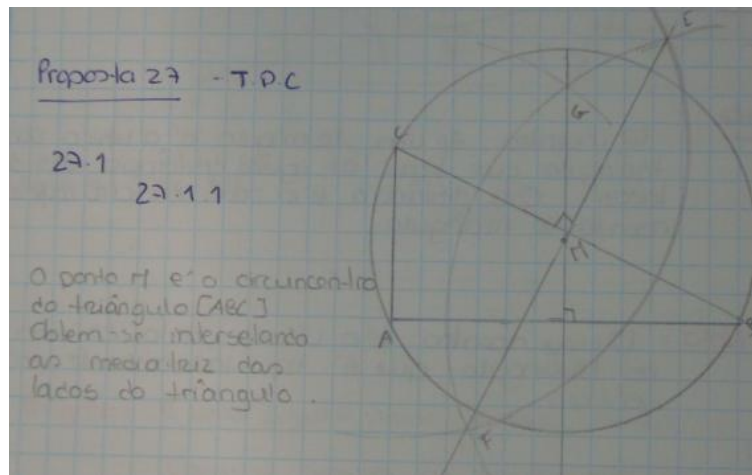 Proposta 27 - T.P.C
27.1
27.1.1
O ponto M e' o circuncentro
do triângulo [ABC]
Obtem-se interselando
as mediatriz das
lados do triângulo.
E
G
C
M
A
B
F